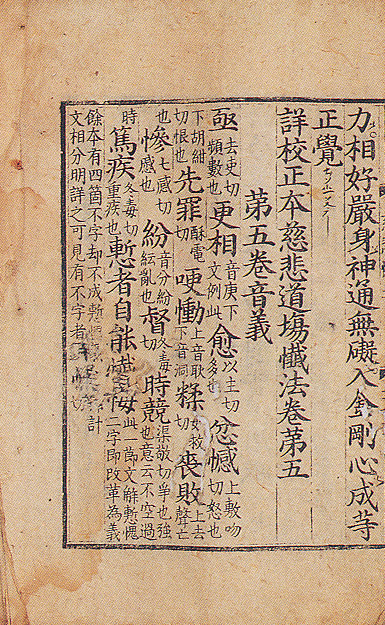 力相好嚴身神通無礙入金剛心成等
正覺
詳校正本慈悲道場懺法卷第五
第五卷音義
亟去吏切頻數也更相音庚下文例此愈以主切多也忿憾上敷吻切怒也
下胡紺切恨也先罪酥電切哽慟上音耿下音洞糅女救切喪敗上去聲亡
也慘七感切感也紛音分紛紜亂也督冬毒切時競渠敬切爭也強也意云不空過
時篤疾冬毒切重疾也慙者自能
此一節文解慙愧二字即改革為義
餘本有四箇不字却不成慙
文相分明詳之可見有不字者
計切